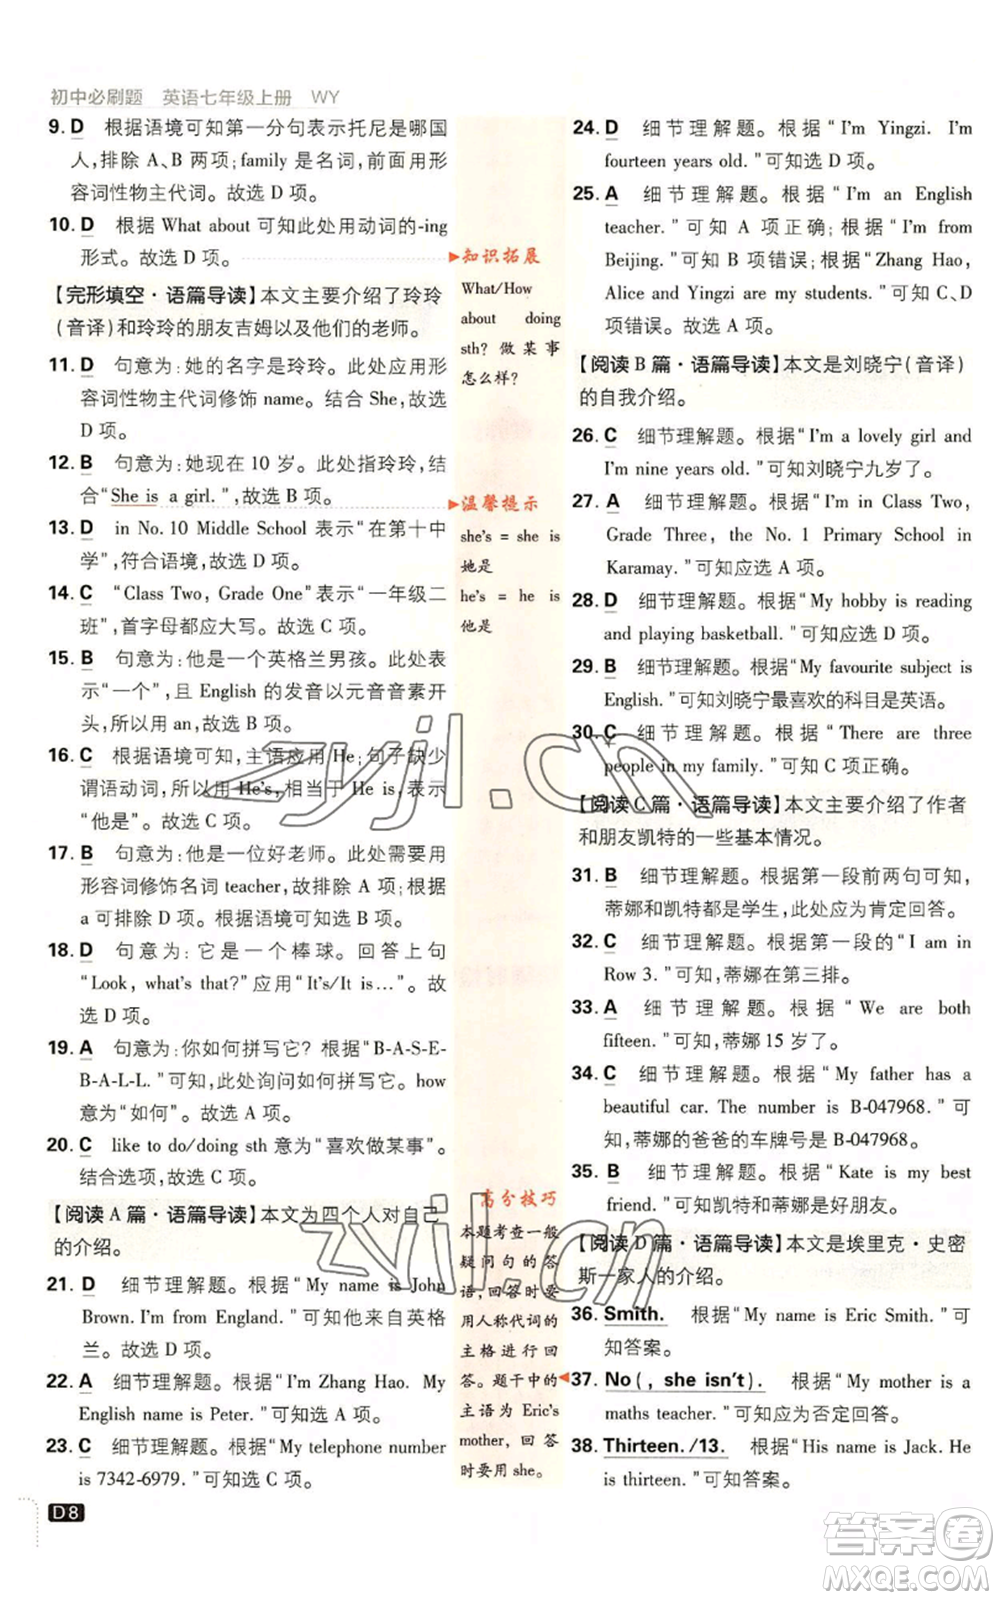 初中必刷题 英语七年级上册 WY
9. D 根据语境可知第一分句表示托尼是哪国
人,排除 A、B 两项;family 是名词,前面用形
容词性物主代词。故选 D 项。
10. D 根据 What about 可知此处用动词的-ing
形式。故选 D 项。
【完形填空·语篇导读】本文主要介绍了玲玲
(音译)和玲玲的朋友吉姆以及他们的老师。
11. D 句意为:她的名字是玲玲。此处应用形
容词性物主代词修饰 name。结合 She,故选
D 项。
12. B 句意为:她现在 10 岁。此处指玲玲,结
合“She is a girl.”,故选 B 项。
13. D in No. 10 Middle School 表示“在第十中
学”,符合语境,故选 D 项。
14. C “Class Two, Grade One”表示“一年级二
班”,首字母都应大写。故选 C 项。
15. B 句意为:他是一个英格兰男孩。此处表
示“一个”,且 English 的发音以元音音素开
头,所以用 an,故选 B 项。
16. C 根据语境可知,主语应用 He;句子缺少
谓语动词,所以用 He's,相当于 He is,表示
“他是”。故选 C 项。
17. B 句意为:他是一位好老师。此处需要用
形容词修饰名词 teacher,故排除 A、C;根据
a 可排除 D 项。根据语境可知选 B 项。
18. D 句意为:它是一个棒球。回答上句
“Look, what's that?”应用“It's/It is...”。故
选 D 项。
19. A 句意为:你如何拼写它?根据“B-A-S-E-
B-A-L-L.”可知,此处询问如何拼写它。how
意为“如何”。故选 A 项。
20. C like to do/doing sth 意为“喜欢做某事”。
结合选项,故选 C 项。
【阅读 A 篇·语篇导读】本文为四个人对自己
的介绍。
21. D 细节理解题。根据“My name is John
Brown. I'm from England.”可知他来自英格
兰。故选 D 项。
22. A 细节理解题。根据“I'm Zhang Hao. My
English name is Peter.”可知选 A 项。
23. C 细节理解题。根据“My telephone number
is 7342-6979.”可知选 C 项。
D8
知识拓展
What/How
about doing
sth? 做某事
怎么样?
温馨提示
she's = she is
她是
he's = he is
他是
高分技巧
本题考查一般
疑问句的答
语,回答时要
用人称代词的
主格进行回
答。题干中的
主语为 Eric's
mother,回答
时要用 she。
24. D 细节理解题。根据“I'm Yingzi. I'm
fourteen years old.”可知选 D 项。
25. A 细节理解题。根据“I'm an English
teacher.”可知 A 项正确;根据“I'm from
Beijing.”可知 B 项错误;根据“Zhang Hao,
Alice and Yingzi are my students.”可知 C、D
项错误。故选 A 项。
【阅读 B 篇·语篇导读】本文是刘晓宁(音译)
的自我介绍。
26. C 细节理解题。根据“I'm a lovely girl and
I'm nine years old.”可知刘晓宁九岁了。
27. A 细节理解题。根据“I'm in Class Two,
Grade Three, the No. 1 Primary School in
Karamay.”可知应选 A 项。
28. D 细节理解题。根据“My hobby is reading
and playing basketball.”可知应选 D 项。
29. B 细节理解题。根据“My favourite subject is
English.”可知刘晓宁最喜欢的科目是英语。
30. C 细节理解题。根据“There are three
people in my family.”可知 C 项正确。
【阅读 C 篇·语篇导读】本文主要介绍了作者
和朋友凯特的一些基本情况。
31. B 细节理解题。根据第一段前两句可知,
蒂娜和凯特都是学生,此处应为肯定回答。
32. C 细节理解题。根据第一段的“I am in
Row 3.”可知,蒂娜在第三排。
33. A 细节理解题。根据“We are both
fifteen.”可知,蒂娜 15 岁了。
34. C 细节理解题。根据“My father has a
beautiful car. The number is B-047968.”可
知,蒂娜的爸爸的车牌号为 B-047968。
35. B 细节理解题。根据“Kate is my best
friend.”可知凯特和蒂娜是好朋友。
【阅读 D 篇·语篇导读】本文是埃里克·史密
斯一家人的介绍。
36. Smith. 根据“My name is Eric Smith.”可
知答案。
37. No(, she isn't). 根据“My mother is a
maths teacher.”可知应为否定回答。
38. Thirteen./13. 根据“His name is Jack. He
is thirteen.”可知答案。
zyjl.cn
zyjl.cn
答案卷
MXQE.COM